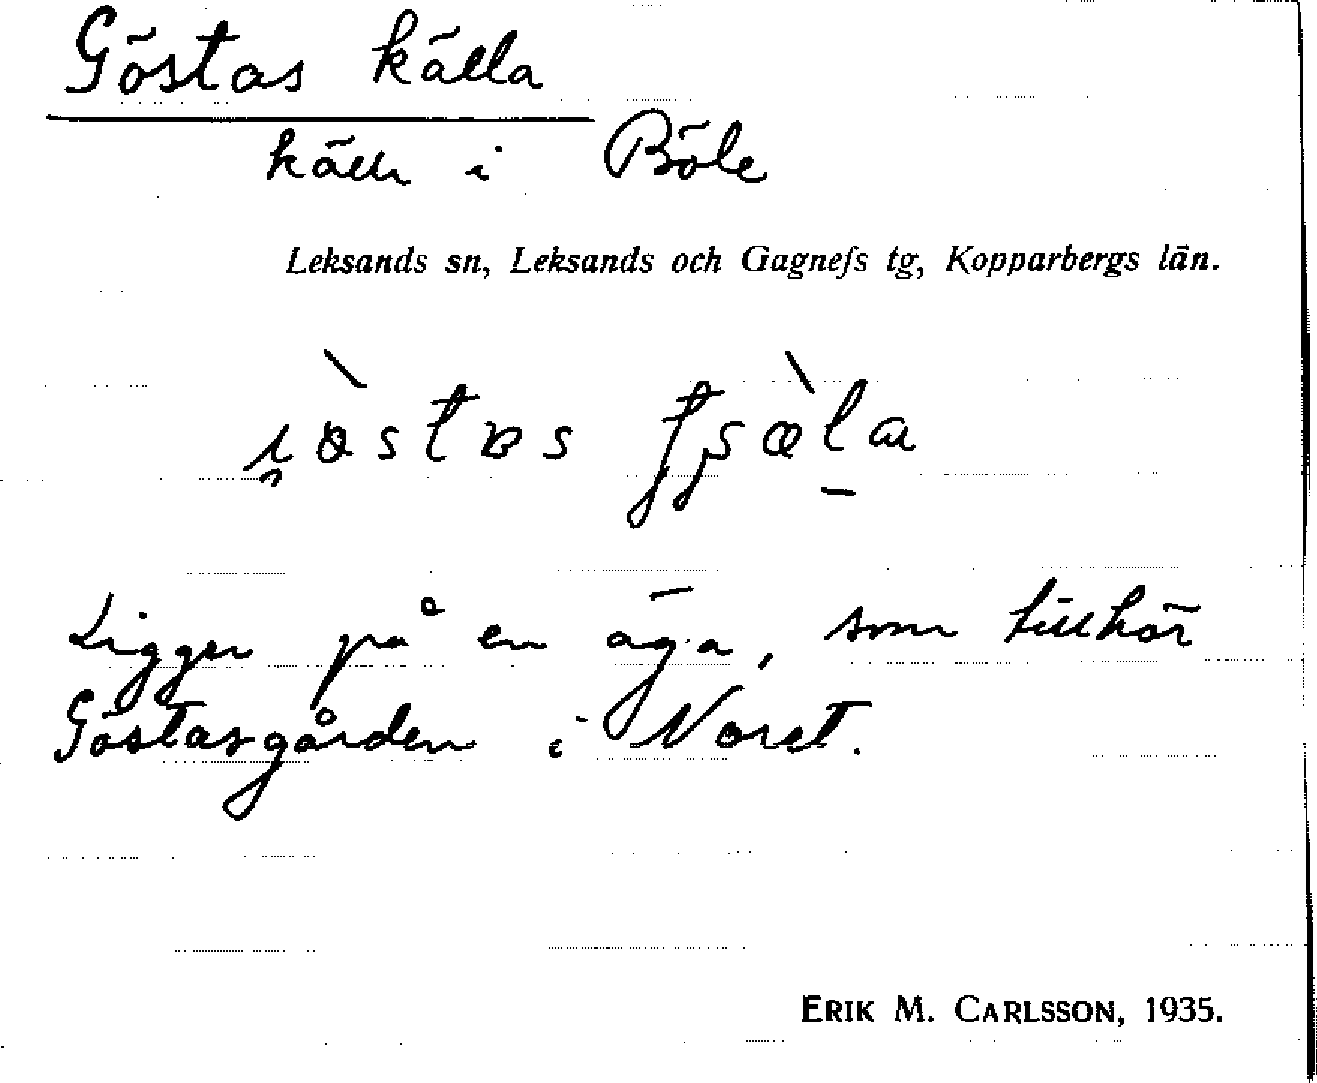 Göstas källa
källa i Böle
Leksands sn, Leksands och Gagnefs tg, Kopparbergs län.
Ligger på en äga, som tillhör
Göstasgården i Noret.
ERIK M. CARLSSON, 1935.